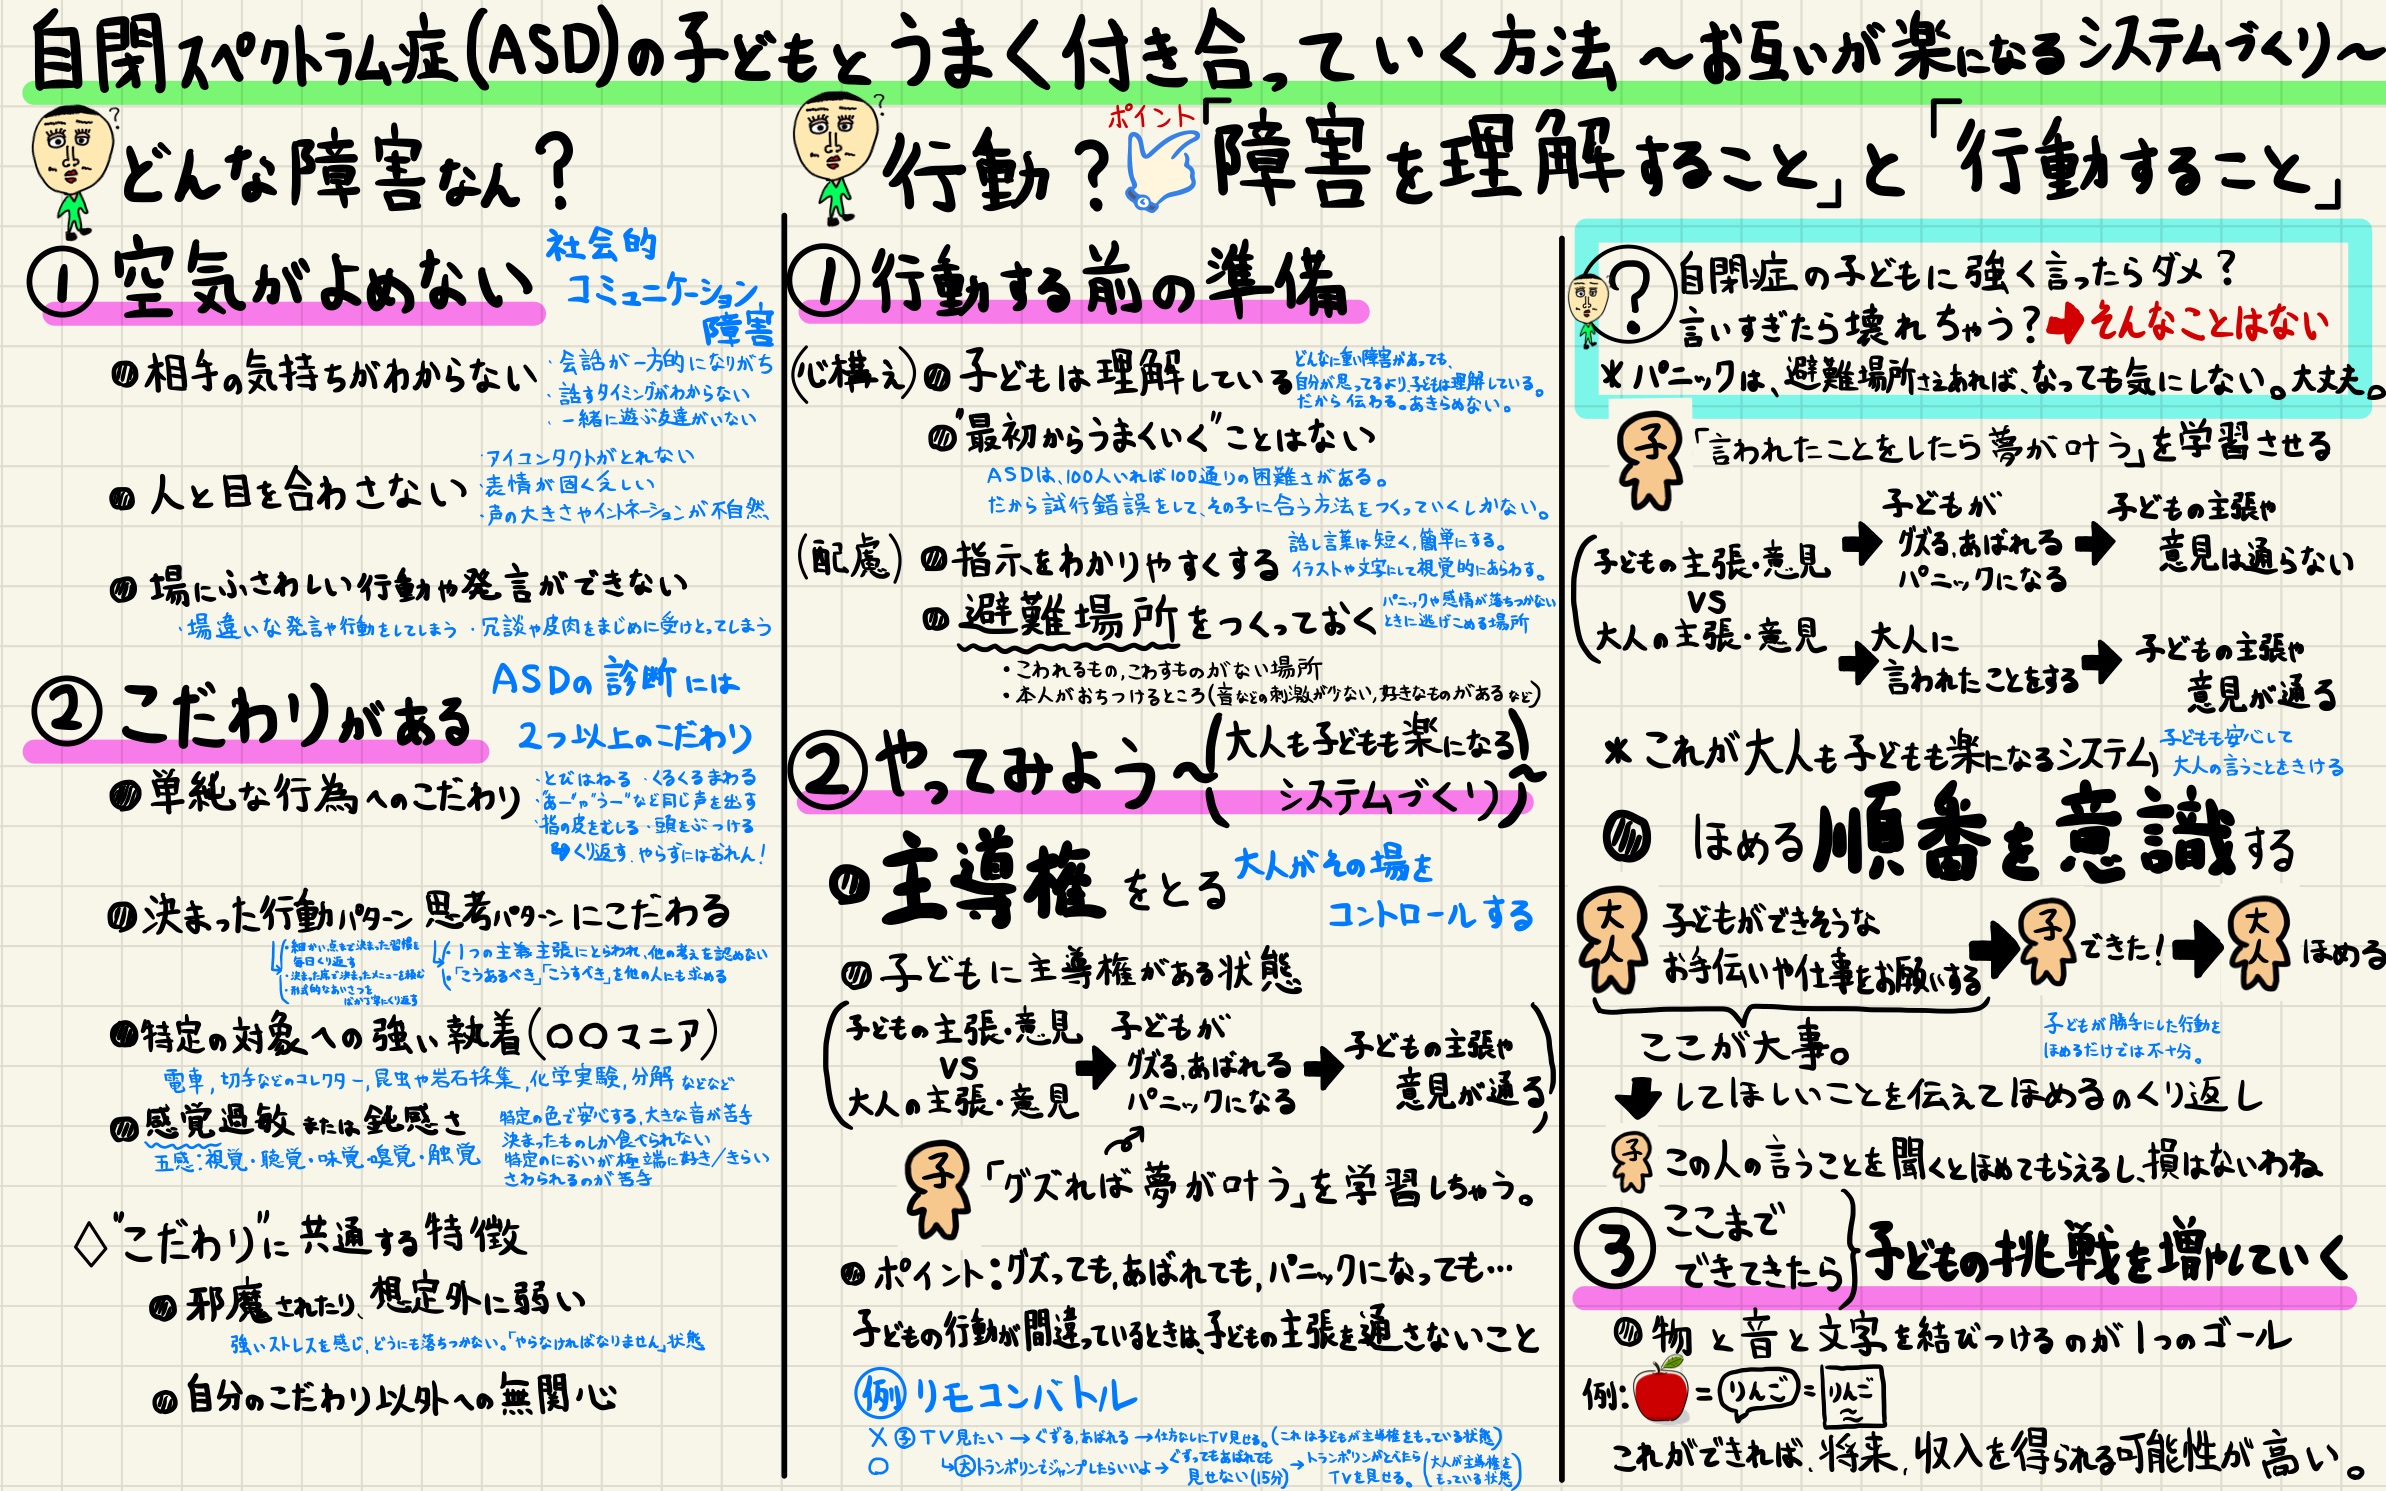 自閉スペクトラム症(ASD)の子どもとうまく付き合っていく方法 〜お互いが楽になるシステムづくり〜
どんな障害なん?
① 空気がよめない
社会的
コミュニケーション
障害
相手の気持ちがわからない
・会話が一方的になりがち
・話すタイミングがわからない
・一緒に遊ぶ友達がいない
人と目を合わさない
・アイコンタクトがとれない
・表情が固く乏しい
・声の大きさやイントネーションが不自然
場にふさわしい行動や発言ができない
・場違いな発言や行動をしてしまう ・冗談や皮肉をまじめに受けとってしまう
② こだわりがある
ASDの診断には
2つ以上のこだわり
単純な行為へのこだわり
・とびはねる ・くるくるまわる
・"あー"や"うー"など同じ声を出す
・指の皮をむしる ・頭をぶつける
くり返す、やらずにはおれん!
決まった行動パターン 思考パターンにこだわる
・細かい点まで決まった習慣を
毎日くり返す
・決まった席で決まったメニューを頼む
・形式的なあいさつを
ばか丁寧にくり返す
・1つの主義主張にとらわれ、他の考えを認めない
・「こうあるべき」「こうすべき」を他の人にも求める
特定の対象への強い執着(〇〇マニア)
電車, 切手などのコレクター, 昆虫や岩石採集, 化学実験, 分解 などなど
感覚過敏 または 鈍感さ
五感:視覚・聴覚・味覚・嗅覚・触覚
特定の色で安心する, 大きな音が苦手
決まったものしか食べられない
特定のにおいが極端に好き/きらい
さわられるのが苦手
◇"こだわり"に共通する特徴
邪魔されたり、想定外に弱い
強いストレスを感じ, どうにも落ちつかない。「やらなければなりません」状態
自分のこだわり以外への無関心
行動?
ポイント
「障害を理解すること」と「行動すること」
① 行動する前の準備
(心構え) 子どもは理解している
どんなに重い障害があっても、
自分が思ってるより、子どもは理解している。
だから伝わる。あきらめない。
"最初からうまくいく"ことはない
ASDは、100人いれば100通りの困難さがある。
だから試行錯誤をして、その子に合う方法をつくっていくしかない。
(配慮) 指示をわかりやすくする
話し言葉は短く, 簡単にする。
イラストや文字にして視覚的にあらわす。
避難場所をつくっておく
パニックや感情が落ちつかない
ときに逃げこめる場所
・こわれるもの, こわすものがない場所
・本人がおちつけるところ(音などの刺激が少ない, 好きなものがあるなど)
② やってみよう〜(大人も子どもも楽になる
システムづくり)〜
主導権をとる
大人がその場を
コントロールする
子どもに主導権がある状態
子どもの主張・意見
VS
大人の主張・意見
子どもが
グズる, あばれる
パニックになる
子どもの主張や
意見が通る
子
「グズれば夢が叶う」を学習しちゃう。
ポイント:グズっても, あばれても, パニックになっても…
子どもの行動が間違っているときは、子どもの主張を通さないこと
例 リモコンバトル
× 子 TV見たい→ぐずる, あばれる→仕方なしにTV見せる。(これは子どもが主導権をもっている状態)
○ 大 トランポリンでジャンプしたらいいよ→
ぐずってもあばれても
見せない(15分)
→トランポリンがとべたら
TVを見せる。
(大人が主導権を
もっている状態)
? 自閉症の子どもに強く言ったらダメ?
言いすぎたら壊れちゃう?➡そんなことはない
※パニックは、避難場所さえあれば、なっても気にしない。大丈夫。
子
「言われたことをしたら夢が叶う」を学習させる
子どもの主張・意見
VS
大人の主張・意見
子どもが
グズる, あばれる
パニックになる
子どもの主張や
意見は通らない
大人に
言われたことをする
子どもの主張や
意見が通る
※これが大人も子どもも楽になるシステム
子どもも安心して
大人の言うことをきける
ほめる順番を意識する
大人
子どもができそうな
お手伝いや仕事をお願いする
子
できた!
大人
ほめる
ここが大事。
子どもが勝手にした行動を
ほめるだけでは不十分。
してほしいことを伝えてほめるのくり返し
子
この人の言うことを聞くとほめてもらえるし、損はないわね
③ ここまで
できてきたら
子どもの挑戦を増やしていく
物と音と文字を結びつけるのが1つのゴール
例: = りんご = りんご
これができれば、将来, 収入を得られる可能性が高い。